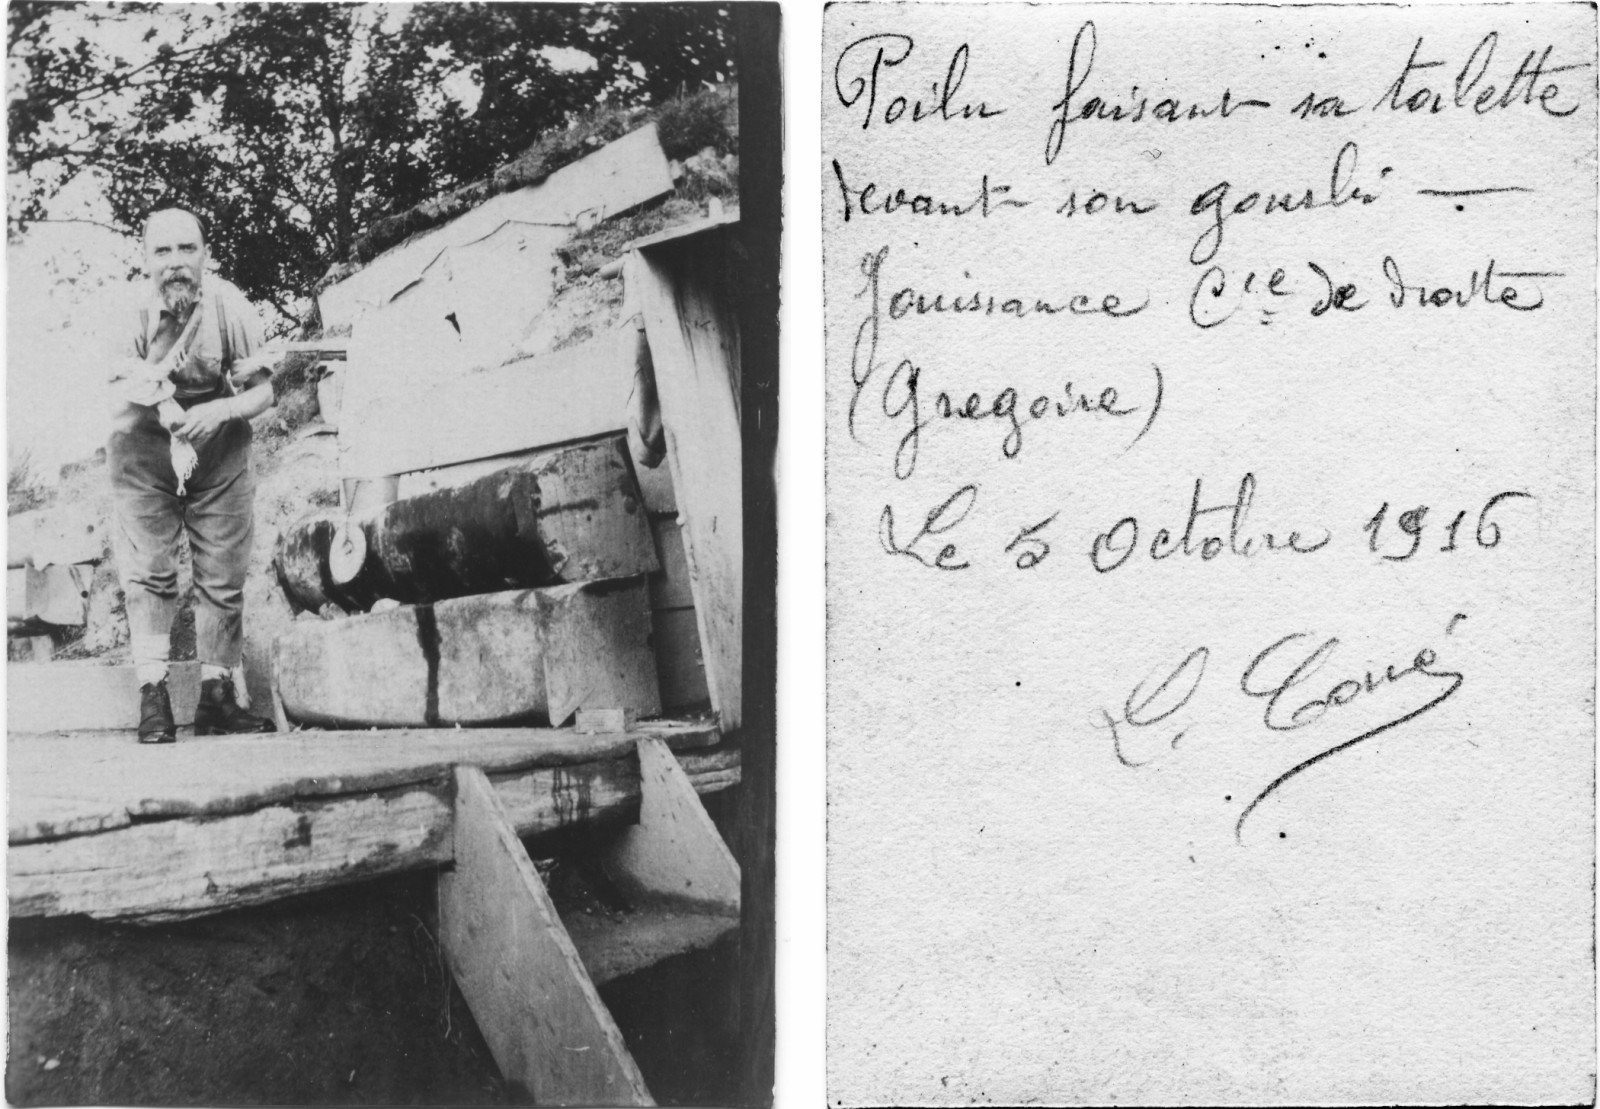 Poilu faisant sa toilette
devant son gourbi —
Jouissance Cie de droite
(Gregoire)
Le 5 Octobre 1916
L.